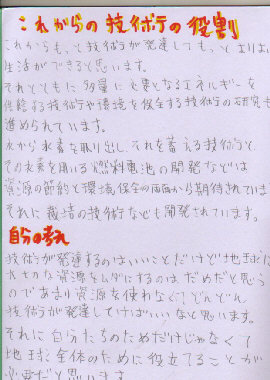 これからの技術の役割
これからもっと技術が発達してもっとよりよい
生活ができると思います。
それとともに多量に必要となるエネルギーを
供給する技術や環境を保全する技術の研究も
進められています。
水から水素を取り出し、それを蓄える技術と
その水素を用いる燃料電池の開発などは
資源の節約と環境保全の両面から期待されていま
それに栽培の技術なども開発されています。
自分の考え
技術が発達するのはいいことだけど地球に
大切な資源をムダにするのはだめだと思う
のであまり資源を使わなくてどんどん
技術が発達してけばいいなと思います。
それに自分たちのためだけじゃなくて
地球全体のために役立てることが
必要だと思います